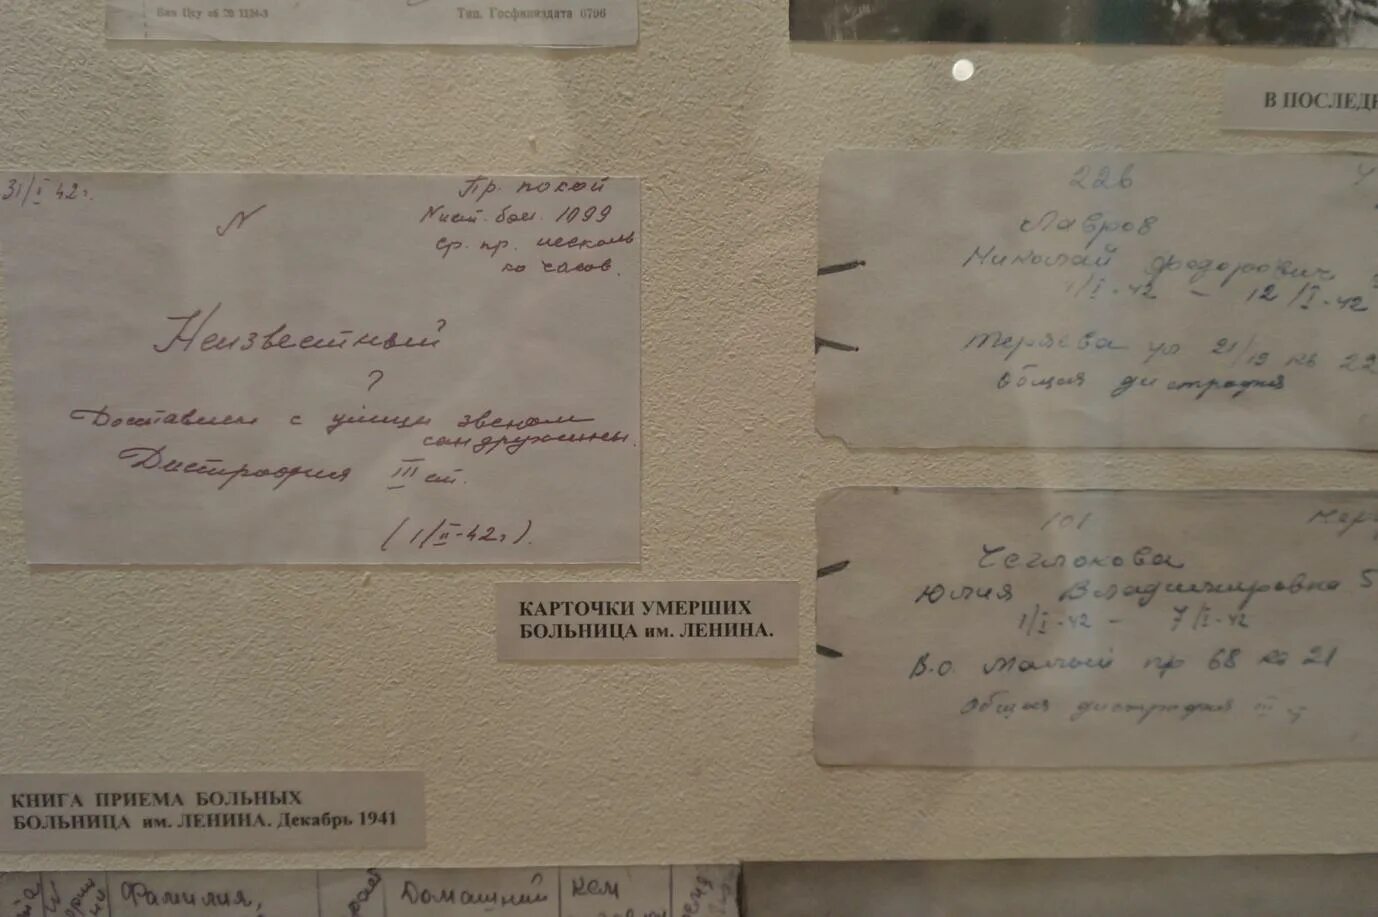 Тип. Госфиниздата 6796
В ПОСЛЕДН
31/I 42г.
Пр. покой
N ист. бол. 1099
ср. пр. несколь
ко часов.
N
Неизвестный
?
Доставлен с улицы звеном
сандружины.
Дистрофия III ст.
(1/II-42г).
22в
Лавров
Николай Федорович
1/I-42 - 12/I-42
ул 21/19 кв 22
Общая дистрофия
101
Чеглокова
Юлия Владимировна 5
1/I-42 - 7/I-42
В.О. Малый пр 68 кв 21
Общая дистрофия III
КАРТОЧКИ УМЕРШИХ
БОЛЬНИЦА им. ЛЕНИНА.
КНИГА ПРИЕМА БОЛЬНЫХ
БОЛЬНИЦА им. ЛЕНИНА. Декабрь 1941
Фамилия,
Домашний
кем